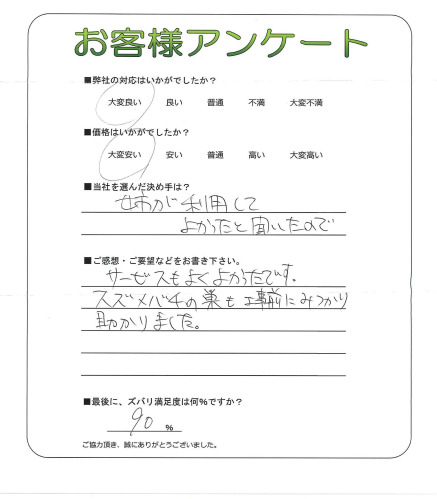 お客様アンケート
■弊社の対応はいかがでしたか?
大変良い 良い 普通 不満 大変不満
■価格はいかがでしたか?
大変安い 安い 普通 高い 大変高い
■当社を選んだ決め手は?
姉が利用して
よかったと聞いたので
■ご感想・ご要望などをお書き下さい。
サービスもよくよかったです。
スズメバチの巣も工事前にみつかり
助かりました。
■最後に、ズバリ満足度は何%ですか?
90 %
ご協力頂き、誠にありがとうございました。